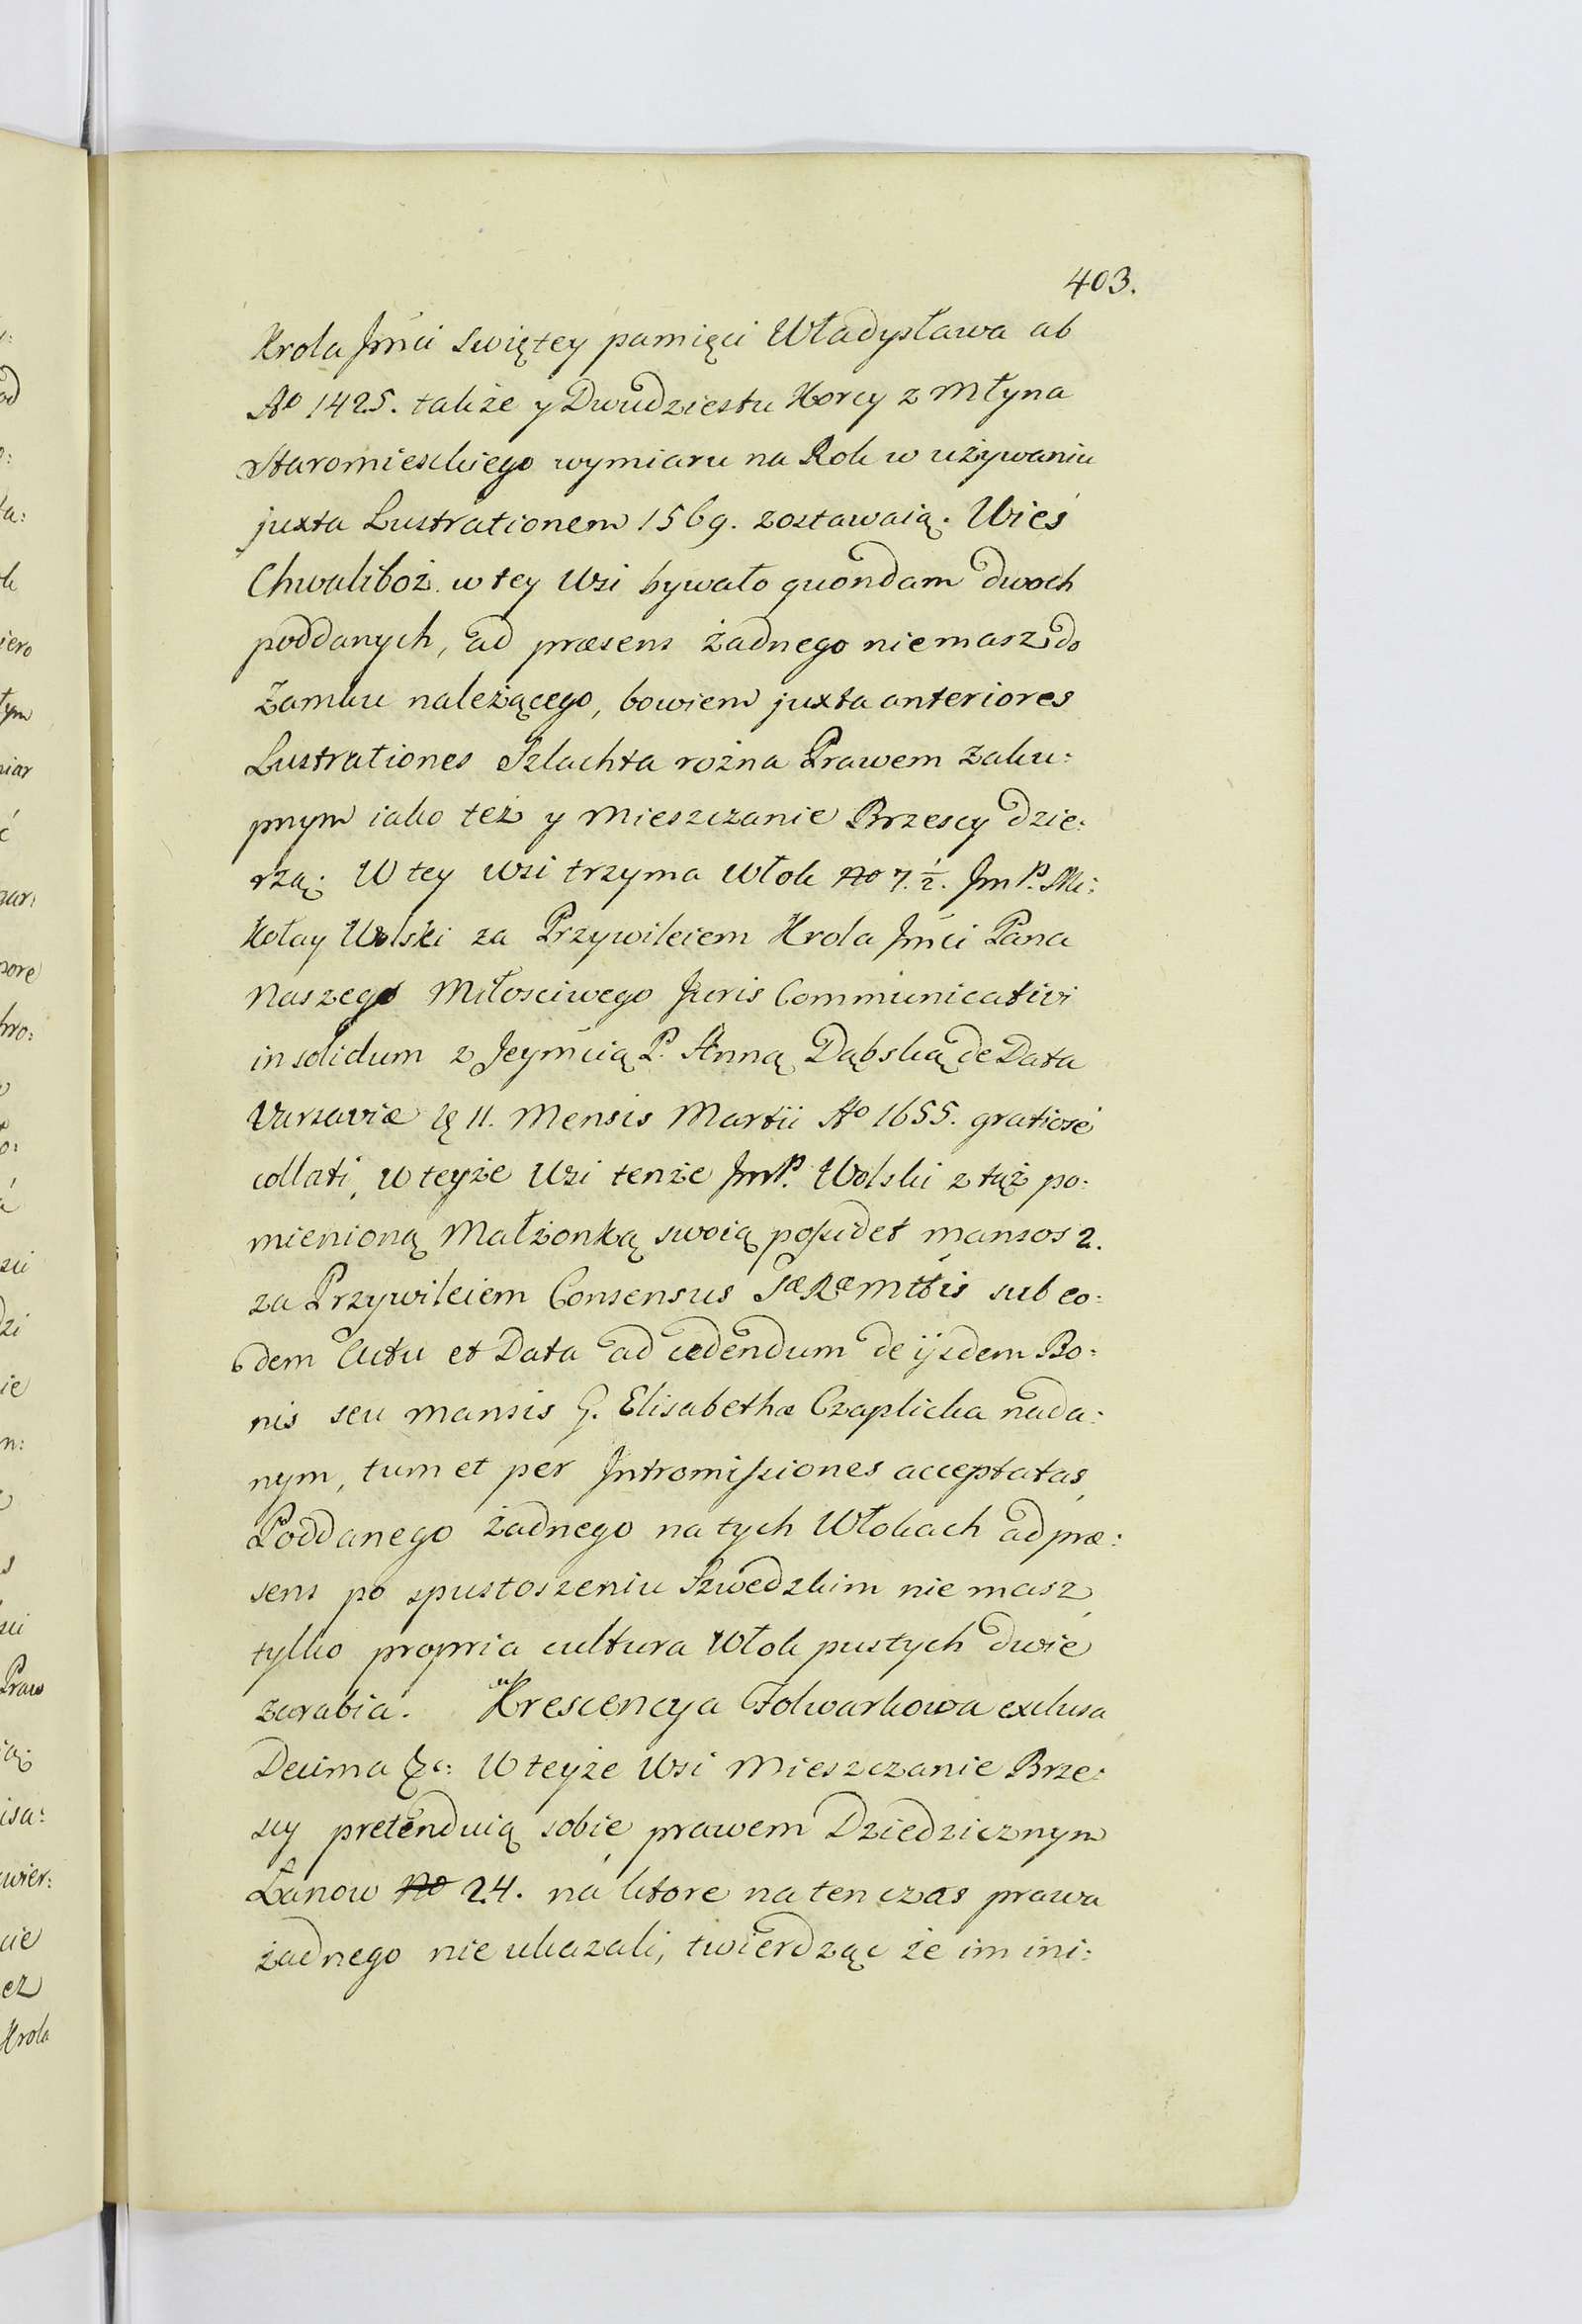 403.
Krola Jmći Swiętey pamięci Władysława ab
Ao 1425. także y Dwudziestu Korcy z Młyna
Staromieskiego wymiaru na Rok w używaniu
juxta Lustrationem 1569. zostawaią. Wieś
Chwaliboż. w tey Wsi bywało quondam dwoch
poddanych, ad præsens żadnego niemasz do
Zamku należącego, bowiem juxta anteriores
Lustrationes Szlachta rożna Prawem Zaku:
pnym iako też y Mieszczanie Brzescy dzie:
rżą. W tey Wsi trzyma Włok No 7.½. Jm P. Mi:
kołay Wolski za Przywileiem Krola Jmći Pana
Naszego Miłosciwego Juris Communicativi
in solidum z Jeymcią P. Anną Dąbską de Data
Varsaviæ 11. Mensis Martii Ao 1655. gratiosé
collati, w teyże Wsi tenże Jm P. Wolski z tąż po:
mienioną Małżonką swoią possidet mansos 2.
za Przywileiem Consensus Sæ Ræ Mttis sub eo:
dem Actu et Data ad cedendum de ijsdem Bo:
nis seu mansis G. Elisabethæ Czaplicka nada:
nym, tum et per Intromissiones acceptatas,
Poddanego żadnego na tych Włokach ad præ:
sens po spustoszeniu Szwedzkim nie masz,
tylko propria cultura Włok pustych dwie
zarabia. Krescencya Folwarkowa exclusa
Decima &c: W teyże Wsi Mieszczanie Brze:
scy pretenduią sobie prawem Dziedzicznym
Łanow No 24. na ktore na ten czas prawa
żadnego nie ukazali, twierdząc że im ini: